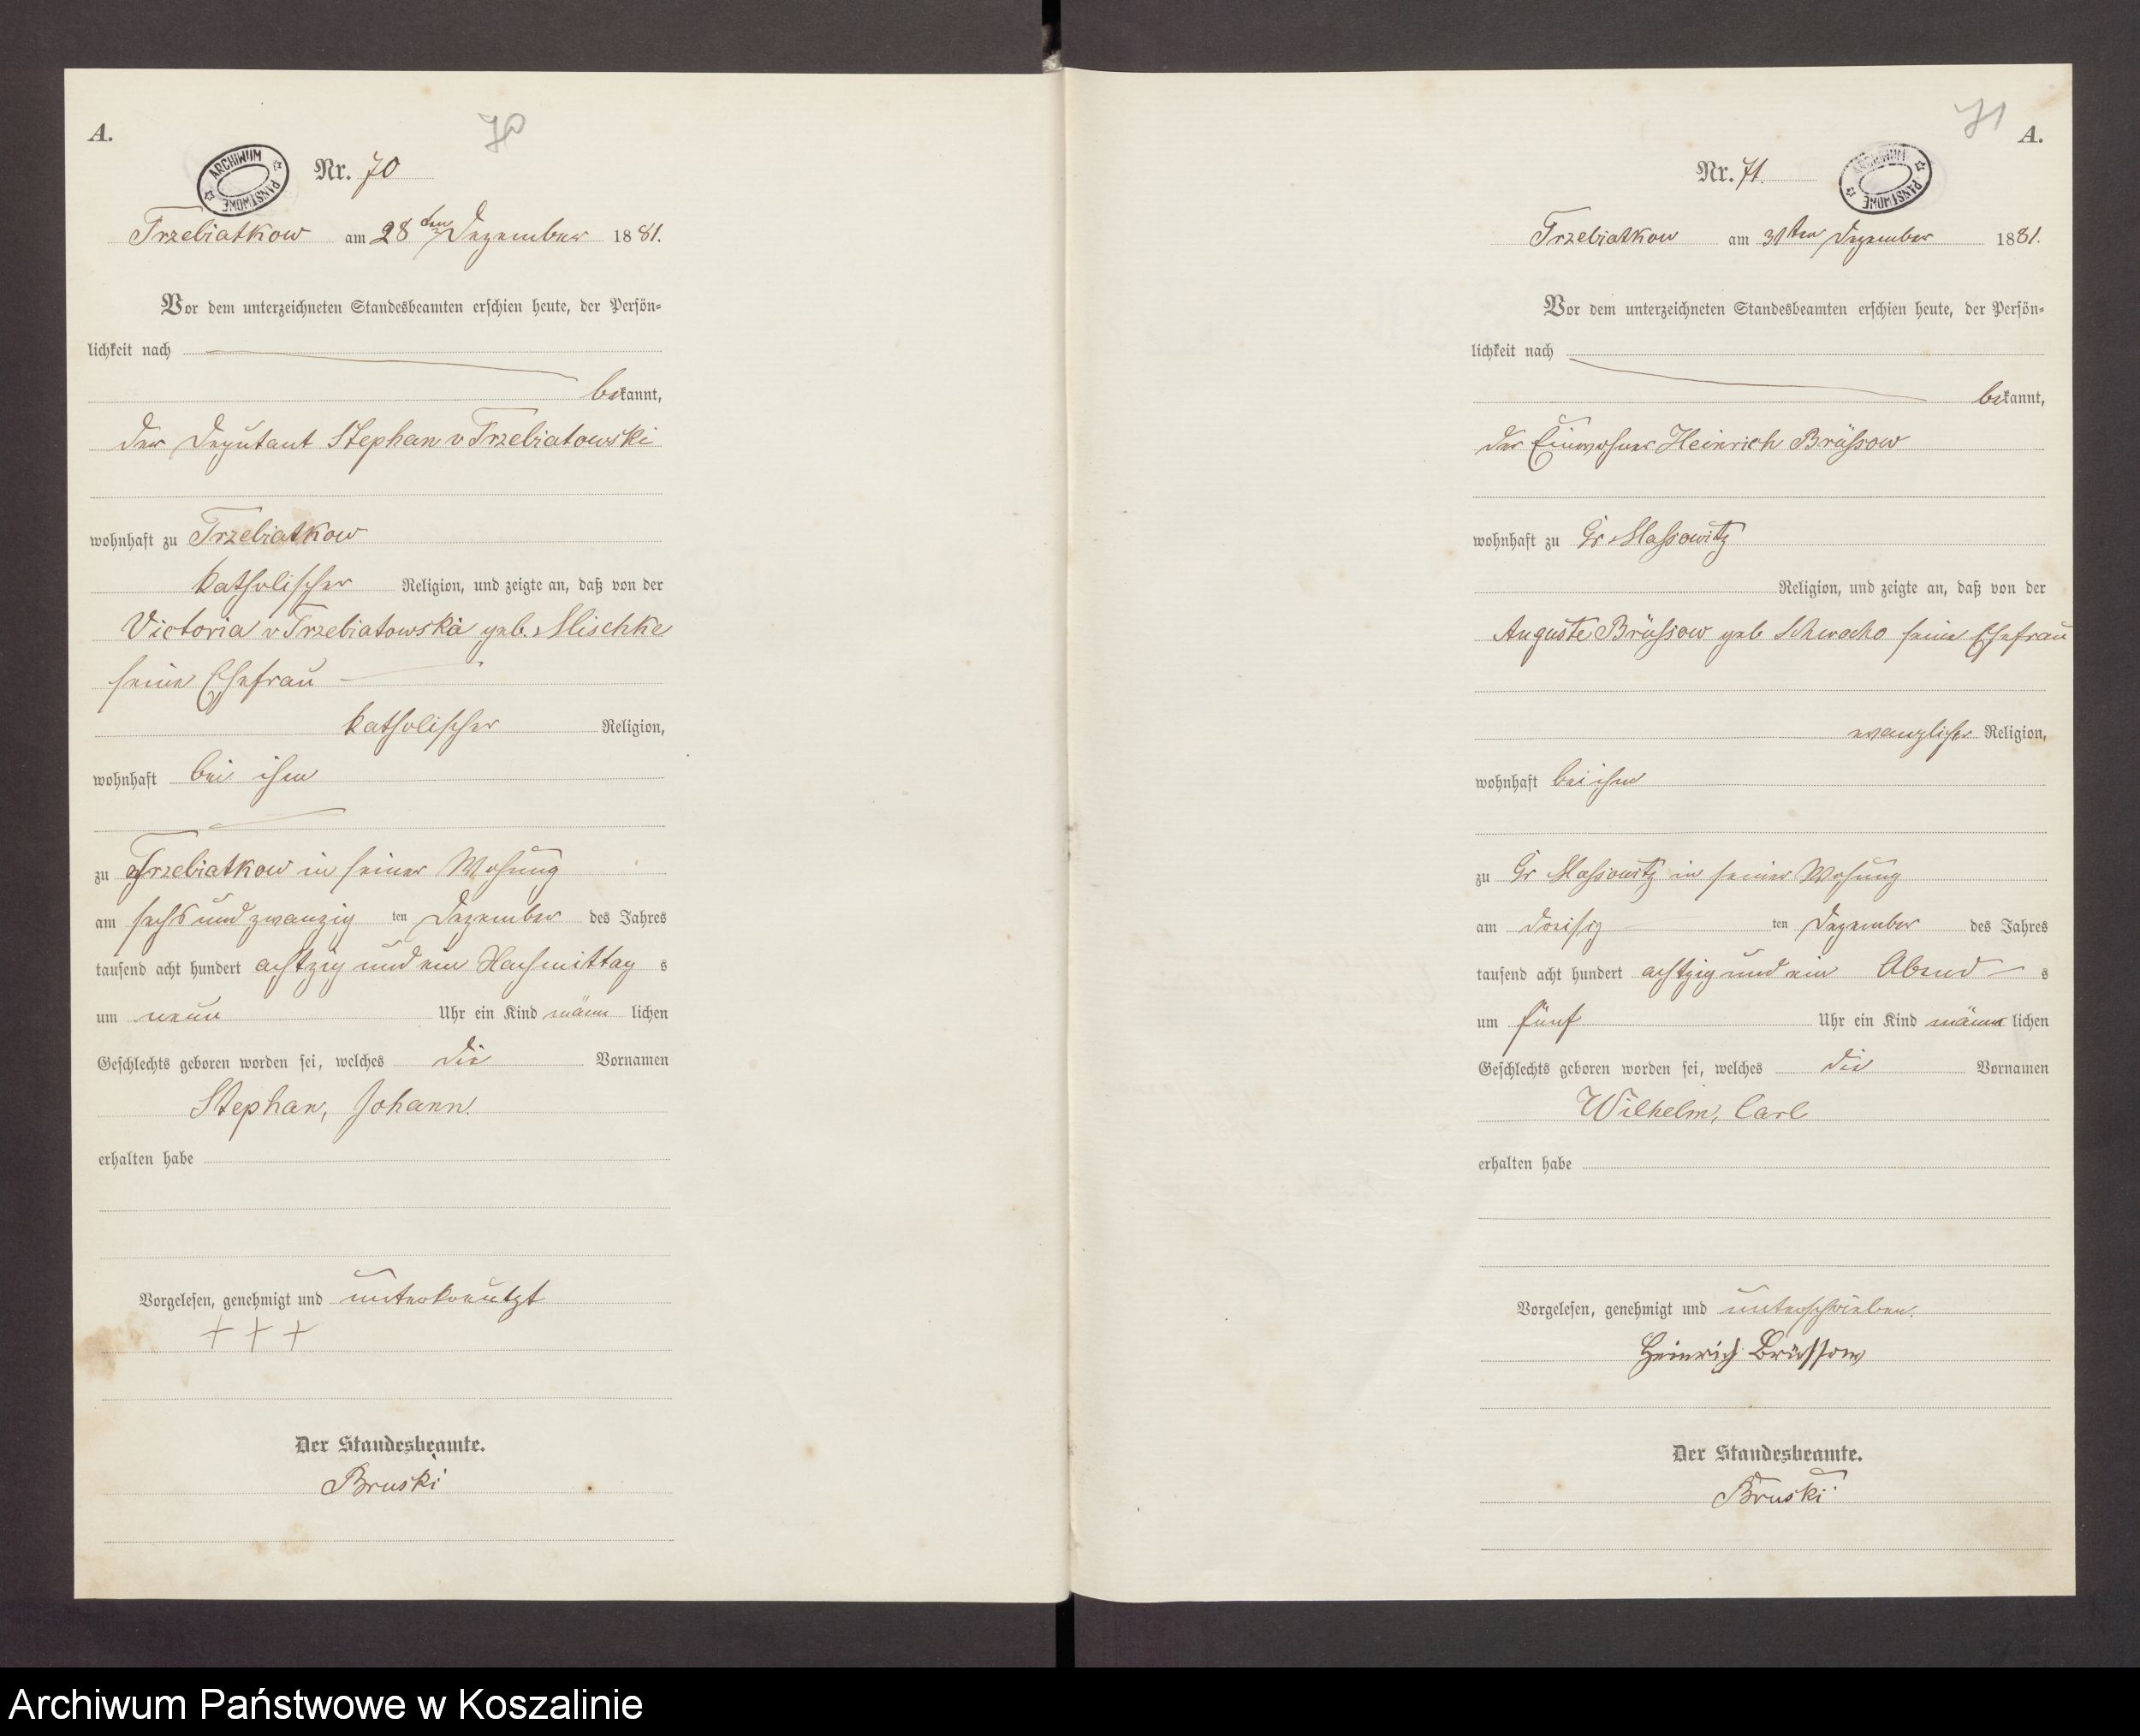 A.
70
ARCHIWUM PAŃSTWOWE
Nr. 70
Trzebiatkow am 28 ten Dezember 1881.
Vor dem unterzeichneten Standesbeamten erschien heute, der Persön-
lichkeit nach
bekannt,
der Deputant Stephan v Trzebiatowski
wohnhaft zu Trzebiatkow
katholischer Religion, und zeigte an, daß von der
Victoria v Trzebiatowska geb. Mischke
seine Ehefrau
katholischer Religion,
wohnhaft bei ihm
zu Trzebiatkow in seiner Wohung
am sechs und zwanzig ten Dezember des Jahres
tausend acht hundert achtzig und ein Nachmittag s
um neun Uhr ein Kind männ lichen
Geschlechts geboren worden sei, welches die Vornamen
Stephan, Johann.
erhalten habe
Vorgelesen, genehmigt und unterkreutzt
+ + +
Der Standesbeamte.
Bruski
71
A.
Nr. 71.
ARCHIWUM PAŃSTWOWE
Trzebiatkow am 31ten Dezember 1881.
Vor dem unterzeichneten Standesbeamten erschien heute, der Persön-
lichkeit nach
bekannt,
der Einwohner Heinrich Brüssow
wohnhaft zu Gr Massowitz
Religion, und zeigte an, daß von der
Auguste Brüssow geb Schwocho seine Ehefrau
evanglischer Religion,
wohnhaft bei ihm
zu Gr Massowitz in seiner Wohung
am dreisig ten Dezember des Jahres
tausend acht hundert achtzig und ein Abend s
um fünf Uhr ein Kind männ lichen
Geschlechts geboren worden sei, welches die Vornamen
Wilhelm, Carl
erhalten habe
Vorgelesen, genehmigt und unterschrieben.
Heinrich Brüssow
Der Standesbeamte.
Bruski
Archiwum Państwowe w Koszalinie